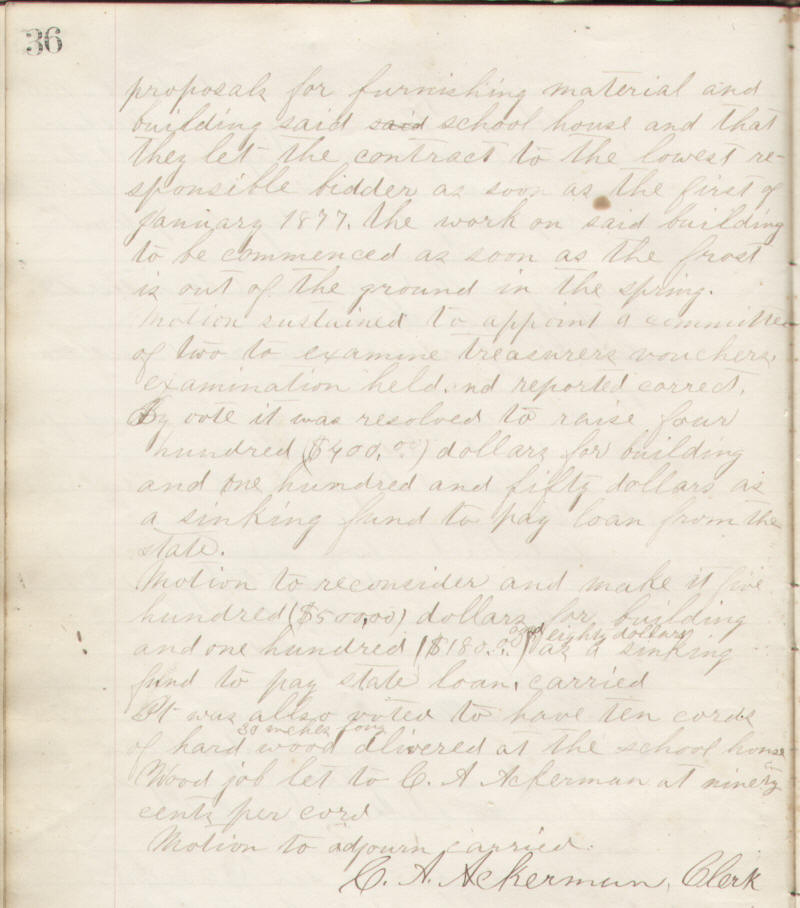 36
proposals for furnishing material and
building said said school house and that
they let the contract to the lowest re-
sponsible bidder as soon as the first of
January 1877. the work on said building
to be commenced as soon as the frost
is out of the ground in the spring.
Motion sustained to appoint a committee
of two to examine treasurers vouchers.
examination held. nd reported correct.
By vote it was resolved to raise four
hundred ($400.00) dollars for building
and one hundred and fifty dollars as
a sinking fund to pay loan from the
state.
Motion to reconsider and make it five
hundred ($500.00) dollars for building
and eighty dollars
and one hundred ($180.00) as a sinking
fund to pay state loan, carried
It was allso voted to have ten cords
30 inches long
of hard wood dlivered at the school house
Wood job let to C. A Ackerman at ninety
cents per cord
Motion to adjourn carried.
C. A. Ackerman, Clerk